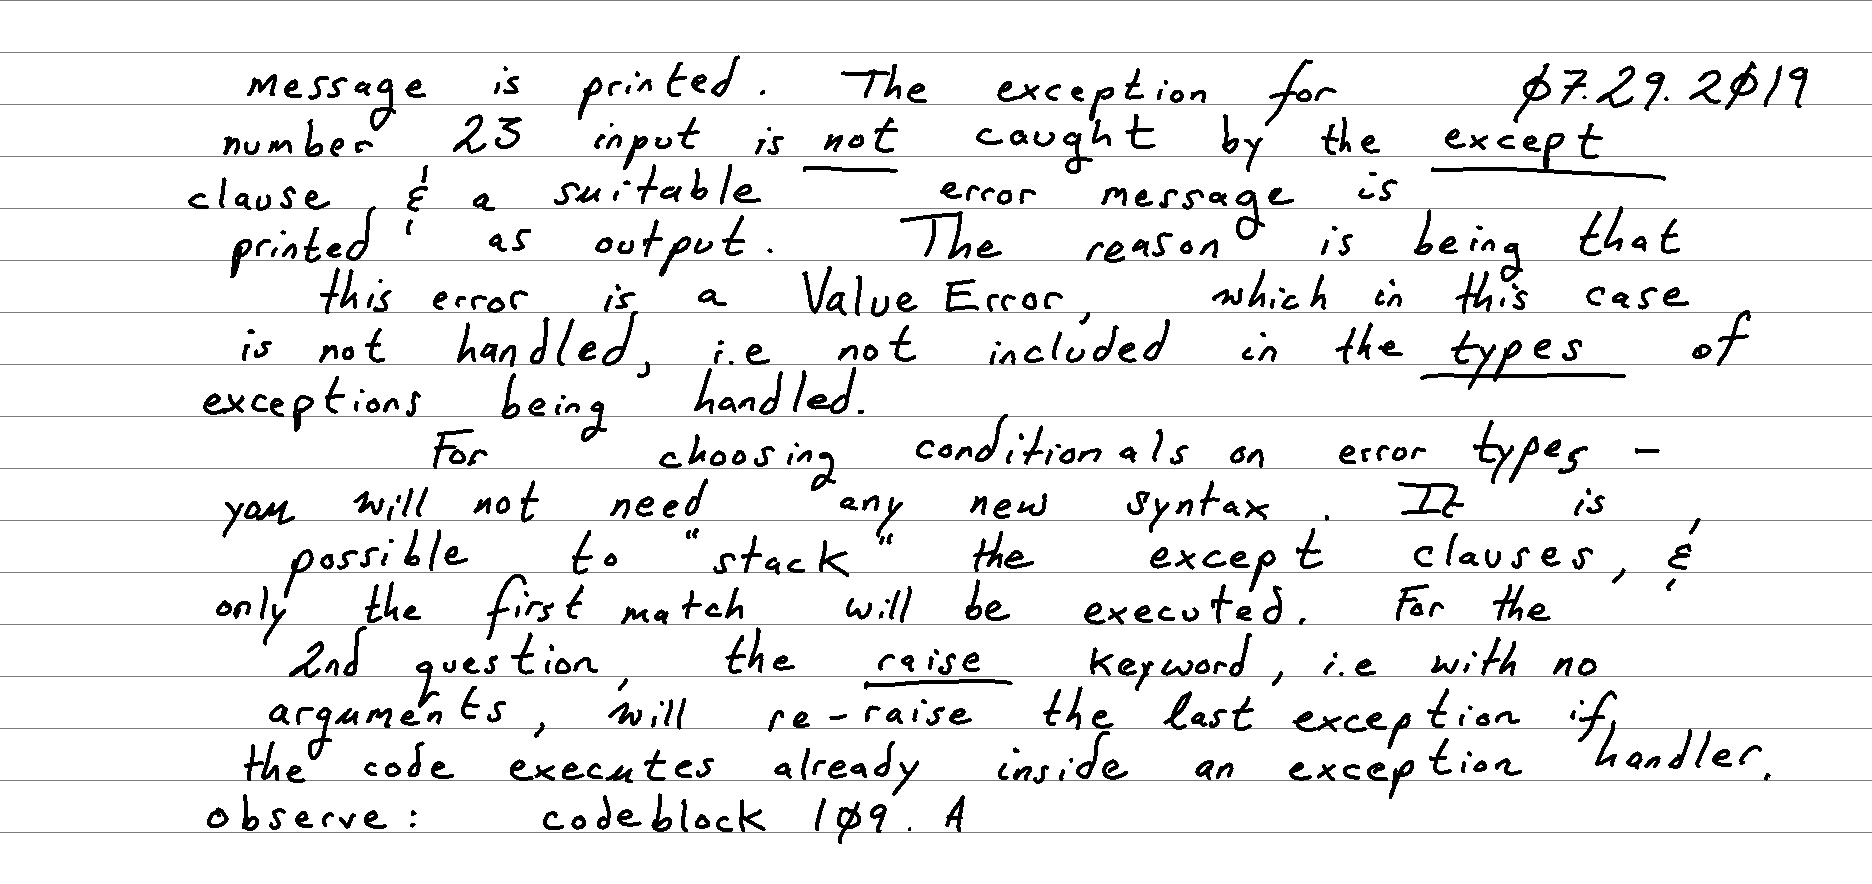 message is printed. The exception for 07.29.2019
number 23 input is not caught by the except
clause, & a suitable error message is
printed as output. The reason is being that
this error is a Value Error, which in this case
is not handled, i.e not included in the types of
exceptions being handled.
For choosing conditionals on error types -
you will not need any new syntax. It is
possible to "stack" the except clauses, &
only the first match will be executed. For the
2nd question, the raise keyword, i.e with no
arguments, will re-raise the last exception if
the code executes already inside an exception handler.
observe: codeblock 109. A